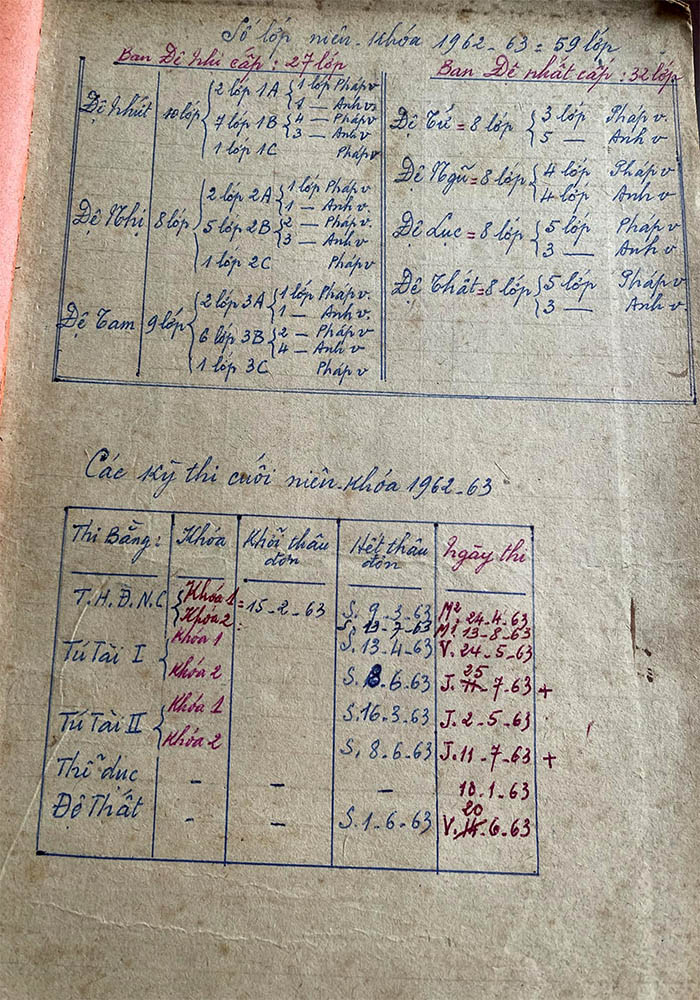 Số lớp niên-khóa 1962-63 = 59 lớp
Ban Đệ nhị cấp : 27 lớp
Đệ Nhứt 10 lớp { 2 lớp 1A { 1 lớp Pháp v
1 — Anh v
7 lớp 1B { 4 — Pháp v
3 — Anh v
1 lớp 1C Pháp v
Đệ Nhị 8 lớp { 2 lớp 2A { 1 lớp Pháp v
1 — Anh v.
5 lớp 2B { 2 — Pháp v.
3 — Anh v
1 lớp 2C Pháp v
Đệ Tam 9 lớp { 2 lớp 3A { 1 lớp Pháp v.
1 — Anh v.
6 lớp 3B { 2 — Pháp v
4 — Anh v
1 lớp 3C Pháp v
Ban Đệ nhất cấp : 32 lớp
Đệ Tứ = 8 lớp { 3 lớp Pháp v.
5 — Anh v
Đệ Ngũ = 8 lớp { 4 lớp Pháp v
4 lớp Anh v
Đệ Lục = 8 lớp { 5 lớp Pháp v
3 — Anh v
Đệ Thất = 8 lớp { 5 lớp Pháp v
3 — Anh v.
Các kỳ thi cuối niên-khóa 1962-63
Thi Bằng: Khóa Khởi thâu đơn Hết thâu đơn Ngày thi
T.H.Đ.N.C { Khóa 1 = 15-2-63 S. 9-3-63 M². 24-4-63
Khóa 2 : S. 13-7-63 M¹ 13-8-63
Tú Tài I { Khóa 1 S. 13-4-63 V. 24-5-63
Khóa 2 S. 8-6-63 J. 25-7-63 +
Tú Tài II { Khóa 1 S. 16-3-63 J. 2-5-63
Khóa 2 S. 8-6-63 J. 11-7-63 +
Thể dục - - - 10.1-63
Đệ Thất - - S. 1-6-63 V. 20-6-63